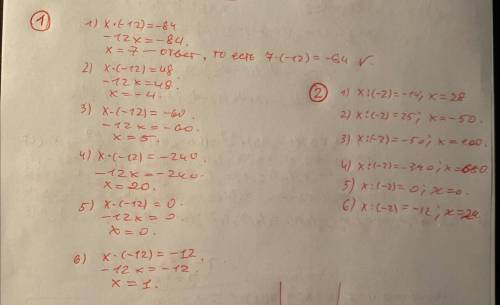 ①
1) x·(-12)=-84
-12x=-84.
x=7 — ответ, то есть 7·(-12)=-84 ✓.
2) x·(-12)=48
-12x=48.
x=-4.
3) x·(-12)=-60
-12x=-60.
x=5.
4) x·(-12)=-240.
-12x=-240.
x=20.
5) x·(-12)=0.
-12x=0.
x=0.
6) x·(-12)=-12.
-12x=-12.
x=1.
②
1) x:(-2)=-14, x=28
2) x:(-2)=25; x=-50.
3) x:(-2)=-50; x=100.
4) x:(-2)=-340; x=680.
5) x:(-2)=0; x=0.
6) x:(-2)=-12; x=24.